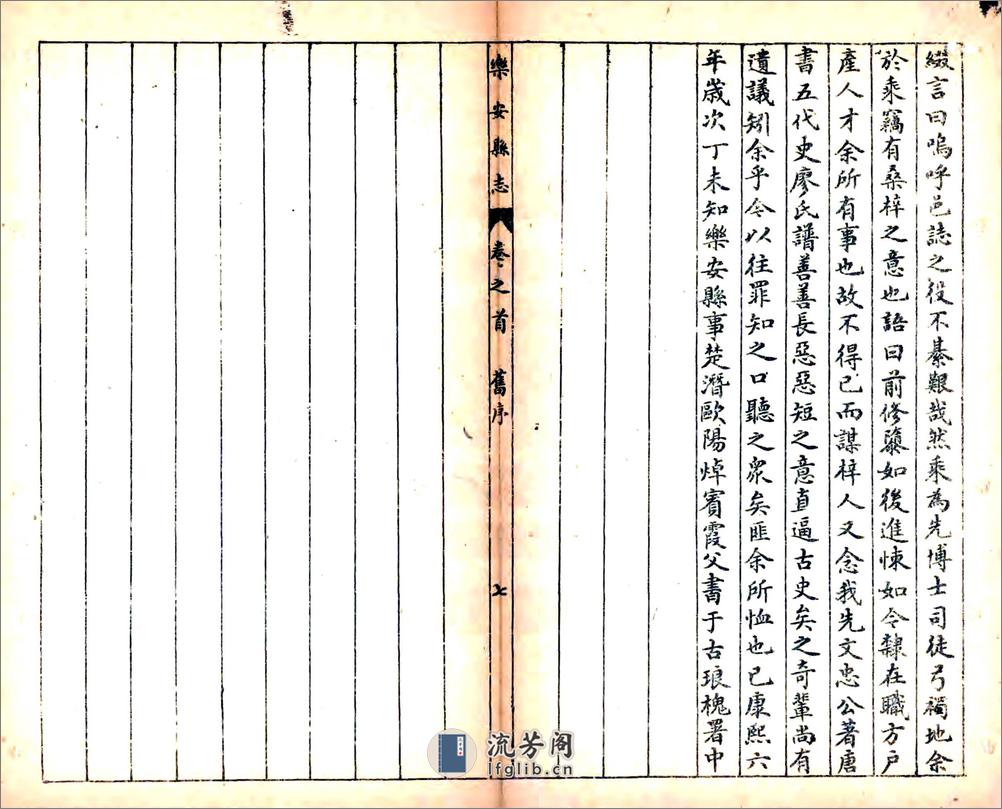 綴言曰嗚呼邑誌之役不綦艱哉然乘為先博士司徒弓禂地余
於乘竊有桑梓之意也語曰前修隳如後進悚如令隸在職方戶
產人才余所有事也故不得已而謀梓人又念我先文忠公著唐
書五代史廖氏譜善善長惡惡短之意直逼古史矣之奇輩尚有
遺議矧余乎今以往罪知之口聽之眾矣匪余所恤也已康熙六
年歲次丁未知樂安縣事楚潛歐陽焯賓霞父書于古琅槐署中
樂安縣志 卷之首 舊序 七
流芳阁
lfglib.cn